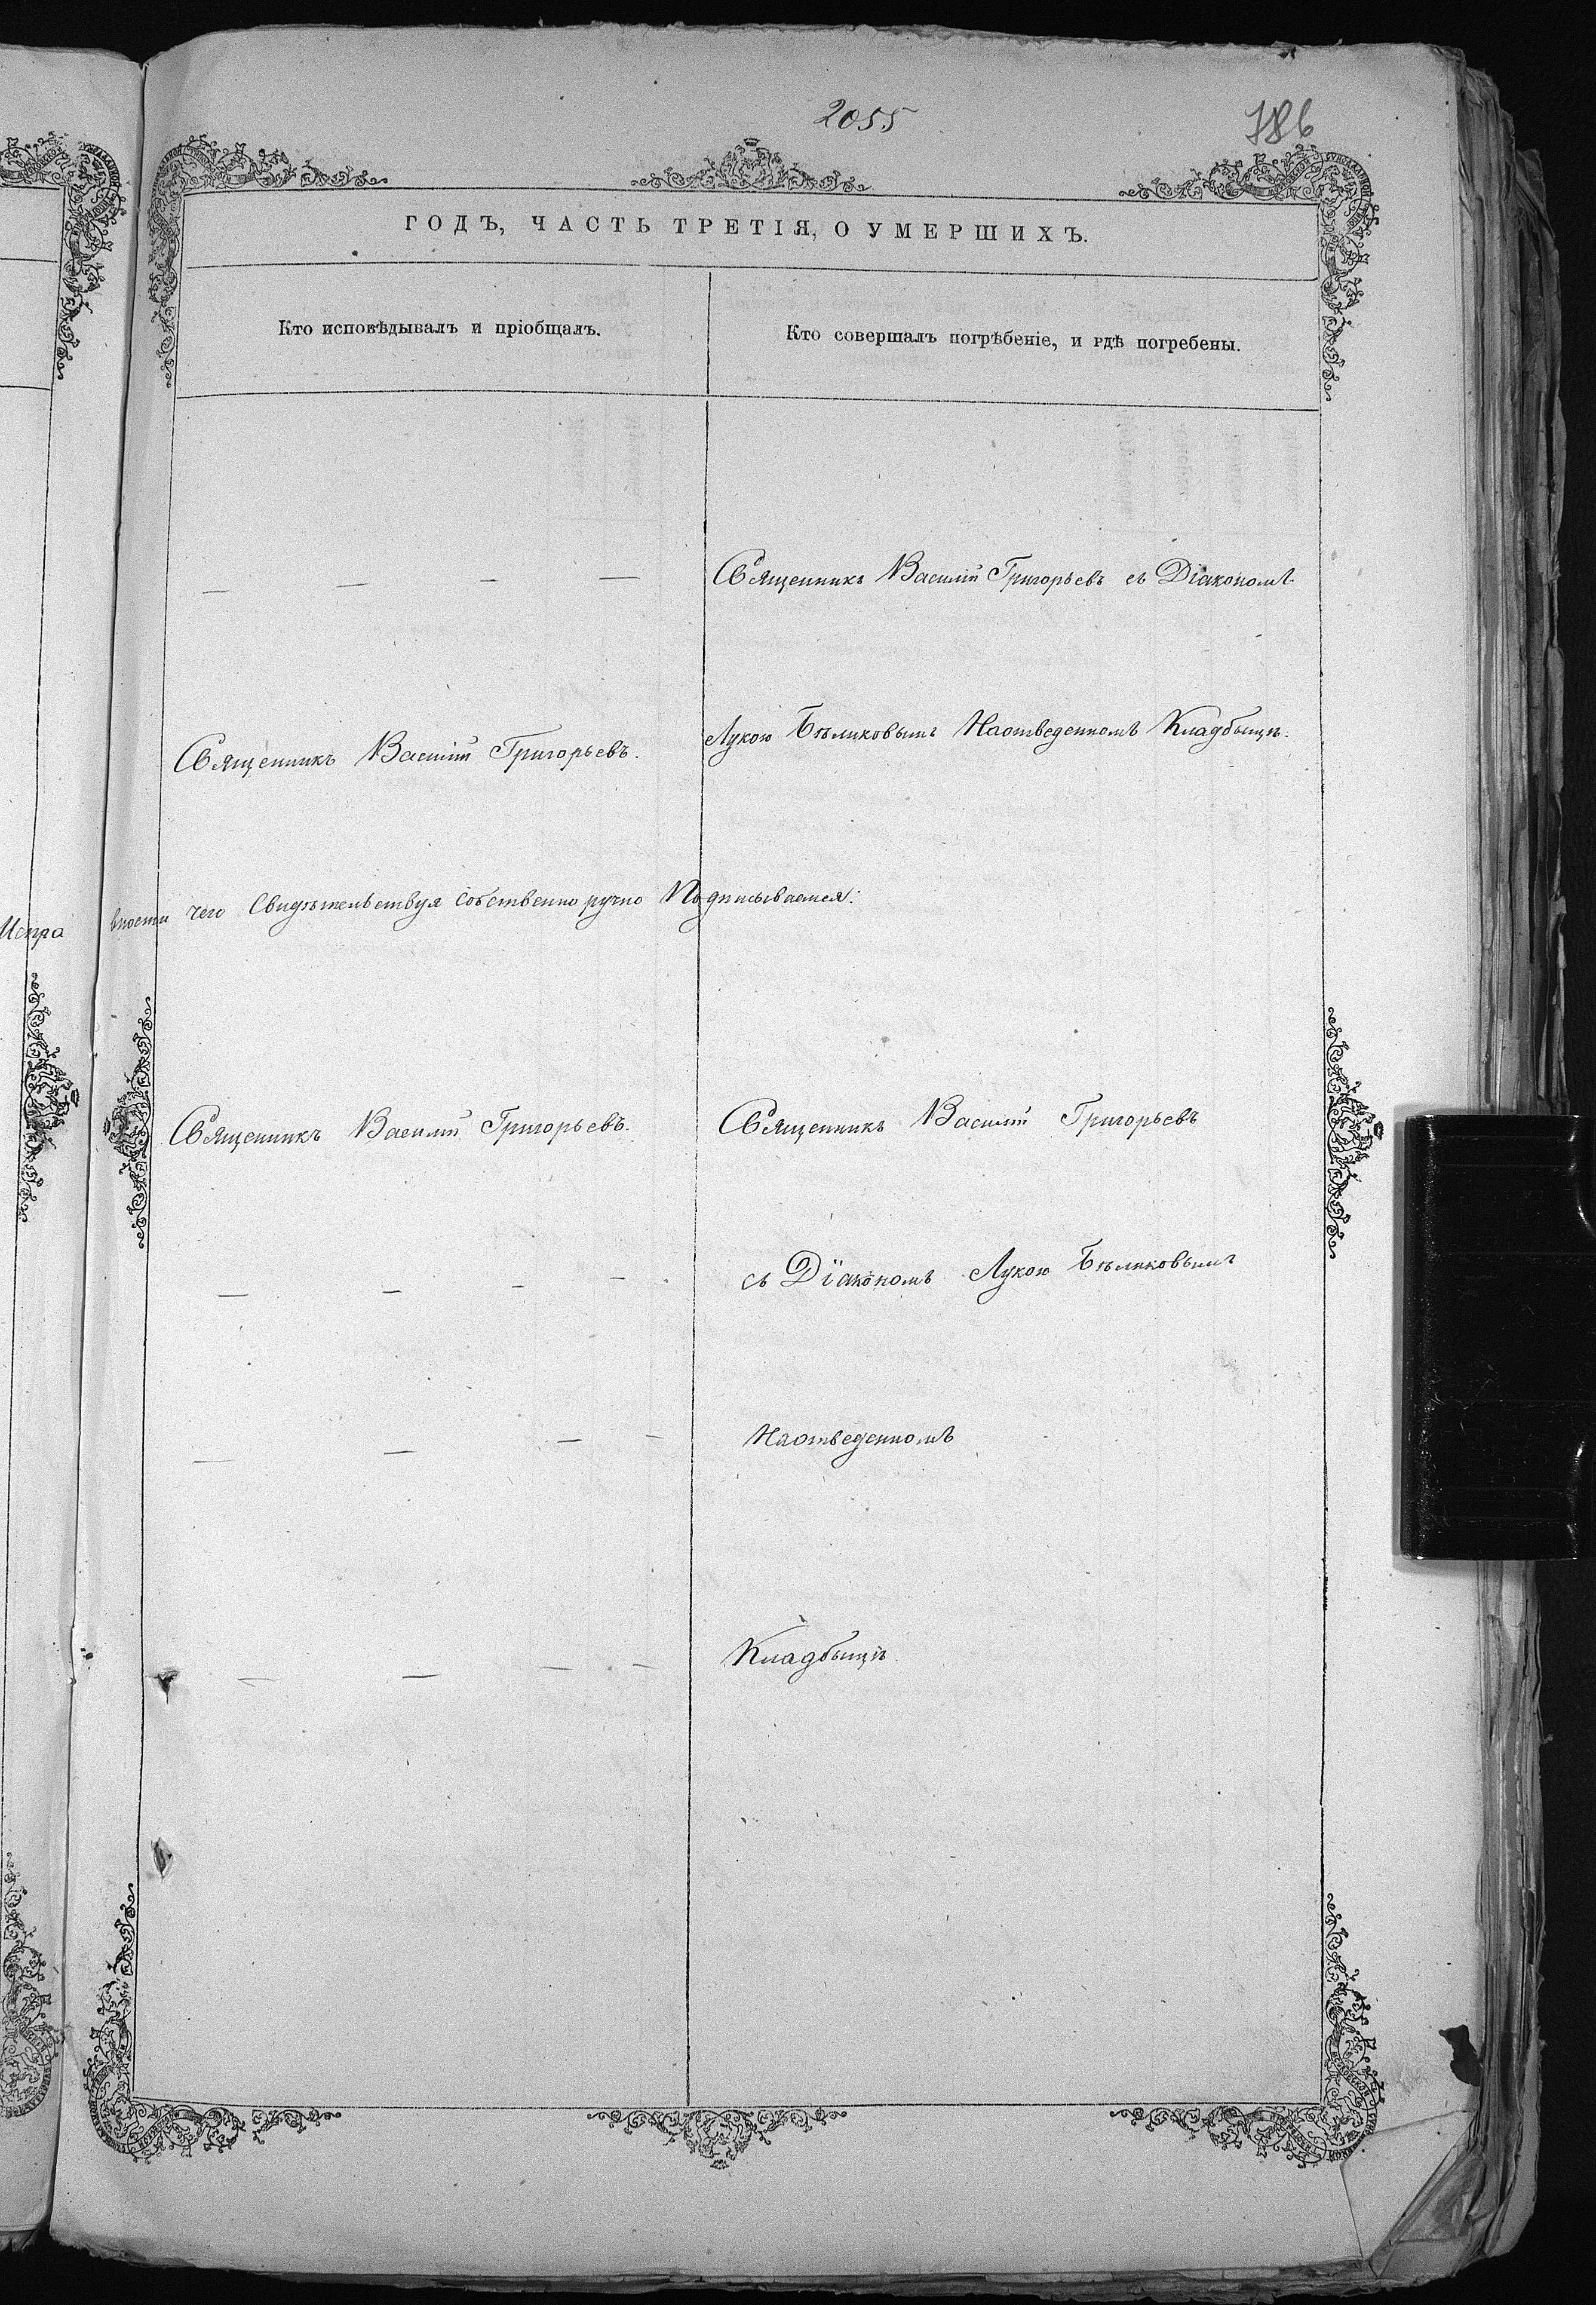 2055
786
ГОДЪ, ЧАСТЬ ТРЕТІЯ, О УМЕРШИХЪ.
Кто исповѣдывалъ и пріобщалъ.
Кто совершалъ погрѣбеніе, и гдѣ погребены.
— — — — Священникъ Василій Григорьевъ съ Діакономъ
Священникъ Василій Григорьевъ. Лукою Бѣликовымъ Наотведенномъ Кладбыщѣ.
Испра вности чего Свидѣтельствуя Собственно ручно Подписываемся:
Священникъ Василій Григорьевъ. Священникъ Василій Григорьевъ
— — — — съ Діакономъ Лукою Бѣликовымъ
— — — — Наотведенномъ
— — — — Кладбыщѣ